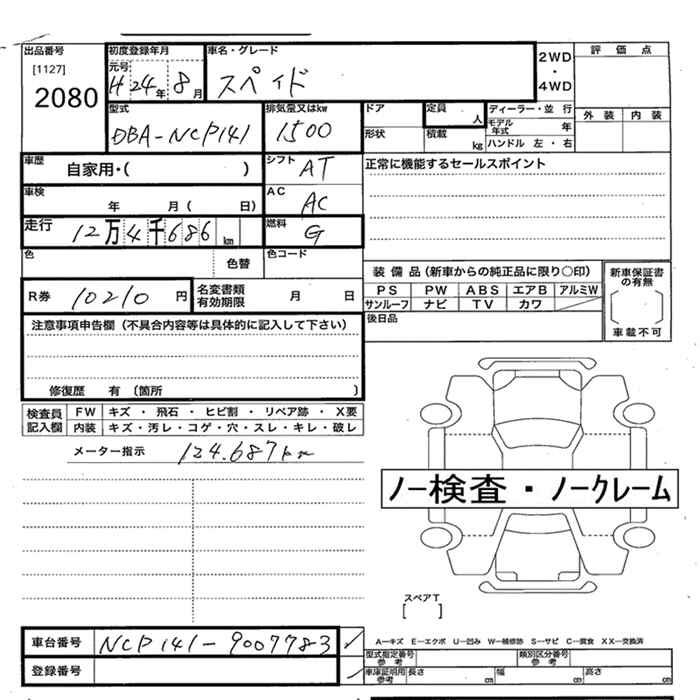 出品番号
[1127]
2080
初度登録年月
元号
H 24年 8月
車名・グレード
スペイド
2WD
・
4WD
評価点
外装 内装
型式
DBA-NCP141
排気量又はkw
1500
ドア
形状
定員
人
積載
kg
ディーラー・並行
モデル年式 年
ハンドル 左・右
車歴
自家用・( )
シフト
AT
正常に機能するセールスポイント
車検
年 月( 日)
AC
AC
走行
12万4千686km
燃料
G
色
色替
色コード
R券 10210円
名変書類
有効期限 月 日
装備品(新車からの純正品に限り○印)
PS PW ABS エアB アルミW
サンルーフ ナビ TV カワ
新車保証書
の有無
車載不可
後日品
注意事項申告欄(不具合内容等は具体的に記入して下さい)
修復歴 有 (箇所 )
検査員
記入欄
FW キズ・飛石・ヒビ割・リペア跡・X要
内装 キズ・汚レ・コゲ・穴・スレ・キレ・破レ
メーター指示 124.687km
ノー検査・ノークレーム
スペアT
[ ]
車台番号 NCP141-9007783
登録番号
A―キズ E―エクボ U―凹み W―補修跡 S―サビ C―腐食 XX―交換済
型式指定番号
参考
類別区分番号
参考
車庫証明用
参考
長さ cm 幅 cm 高さ cm